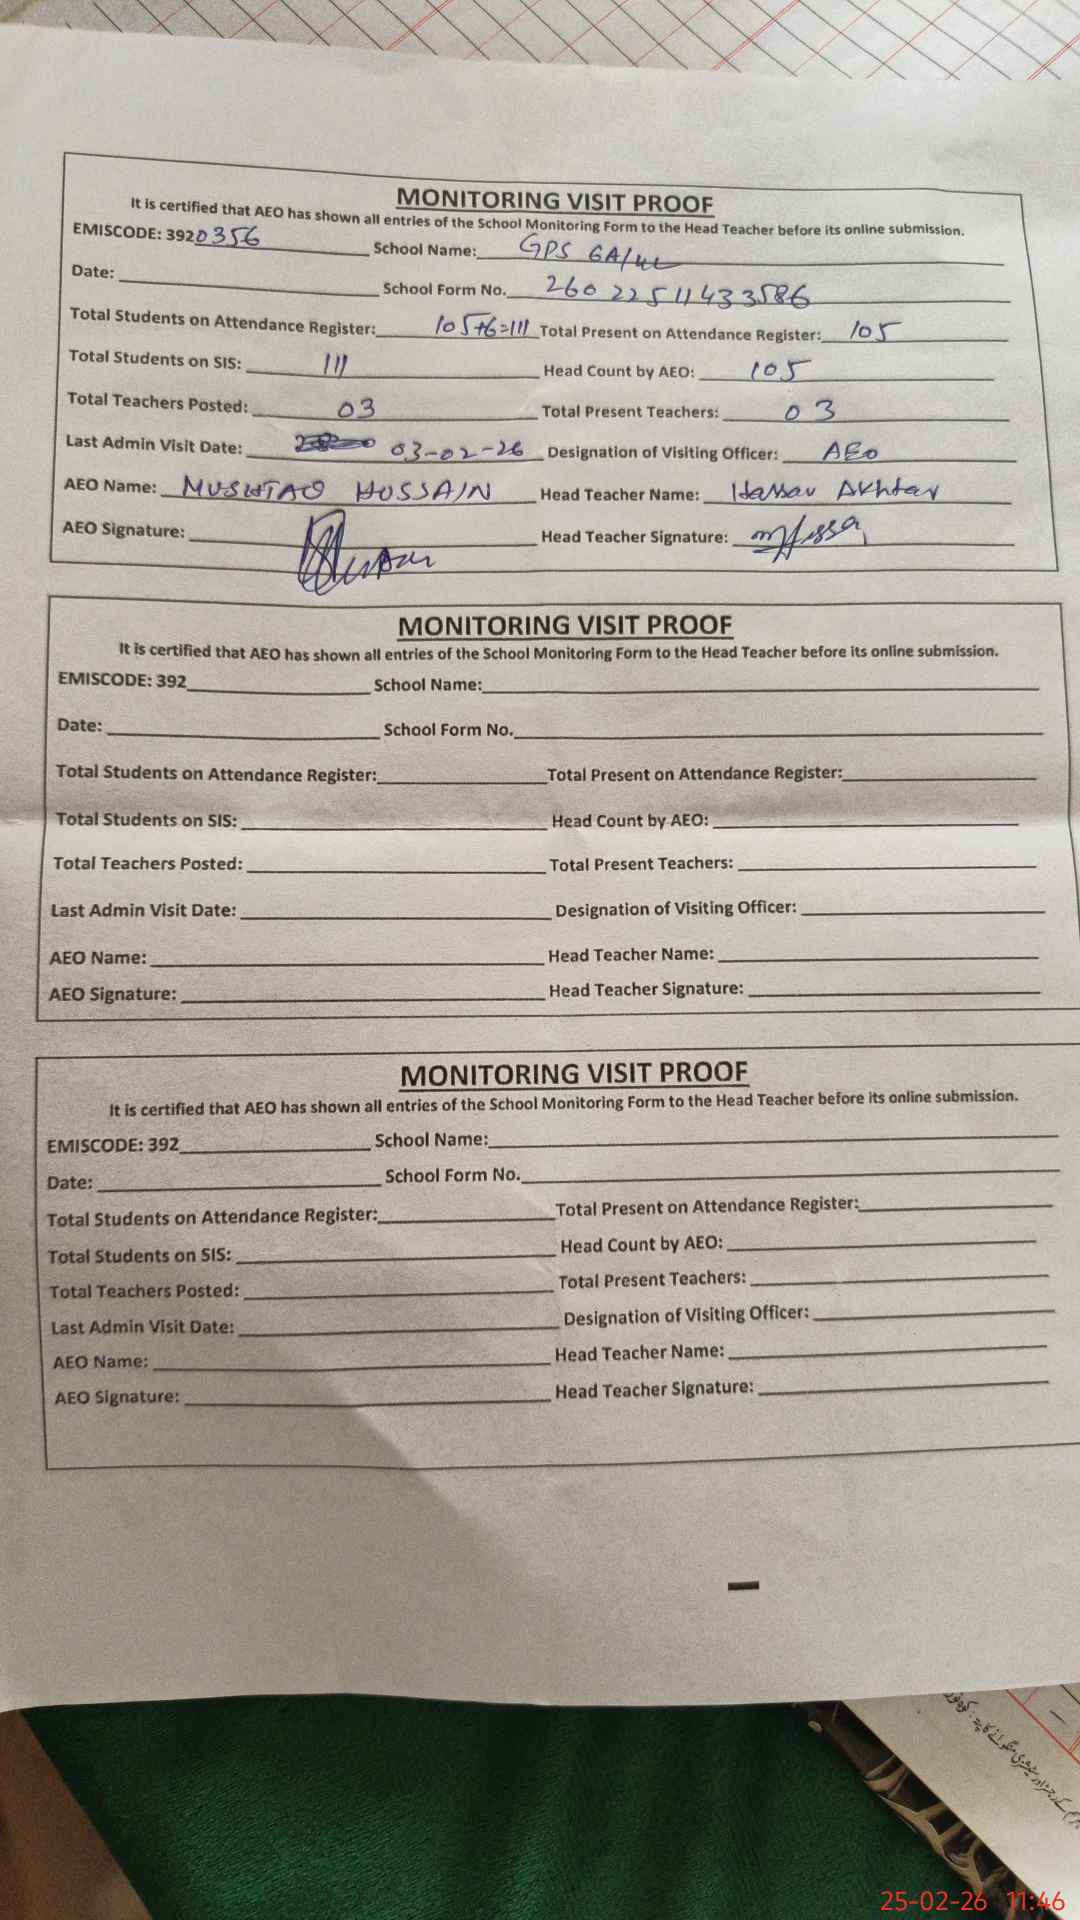 MONITORING VISIT PROOF
It is certified that AEO has shown all entries of the School Monitoring Form to the Head Teacher before its online submission.
EMISCODE: 3920356 School Name: GPS
Date: School Form No. 26022511433586
Total Students on Attendance Register: 105+6=111 Total Present on Attendance Register: 105
Total Students on SIS: 111 Head Count by AEO: 105
Total Teachers Posted: 03 Total Present Teachers: 03
Last Admin Visit Date: 03-02-26 Designation of Visiting Officer: AEO
AEO Name: MUSHTAQ HUSSAIN Head Teacher Name: Hassan Akhtar
AEO Signature: Head Teacher Signature:
MONITORING VISIT PROOF
It is certified that AEO has shown all entries of the School Monitoring Form to the Head Teacher before its online submission.
EMISCODE: 392 School Name:
Date: School Form No.
Total Students on Attendance Register: Total Present on Attendance Register:
Total Students on SIS: Head Count by AEO:
Total Teachers Posted: Total Present Teachers:
Last Admin Visit Date: Designation of Visiting Officer:
AEO Name: Head Teacher Name:
AEO Signature: Head Teacher Signature:
MONITORING VISIT PROOF
It is certified that AEO has shown all entries of the School Monitoring Form to the Head Teacher before its online submission.
EMISCODE: 392 School Name:
Date: School Form No.
Total Students on Attendance Register: Total Present on Attendance Register:
Total Students on SIS: Head Count by AEO:
Total Teachers Posted: Total Present Teachers:
Last Admin Visit Date: Designation of Visiting Officer:
AEO Name: Head Teacher Name:
AEO Signature: Head Teacher Signature:
25-02-26 11:46